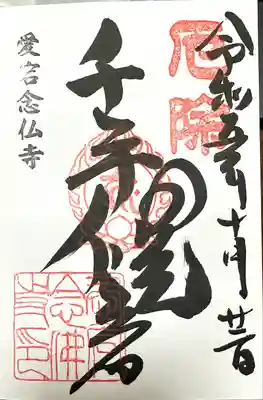 令和五年十月
厄除
千手観世音
愛宕念仏寺
愛宕念佛寺印